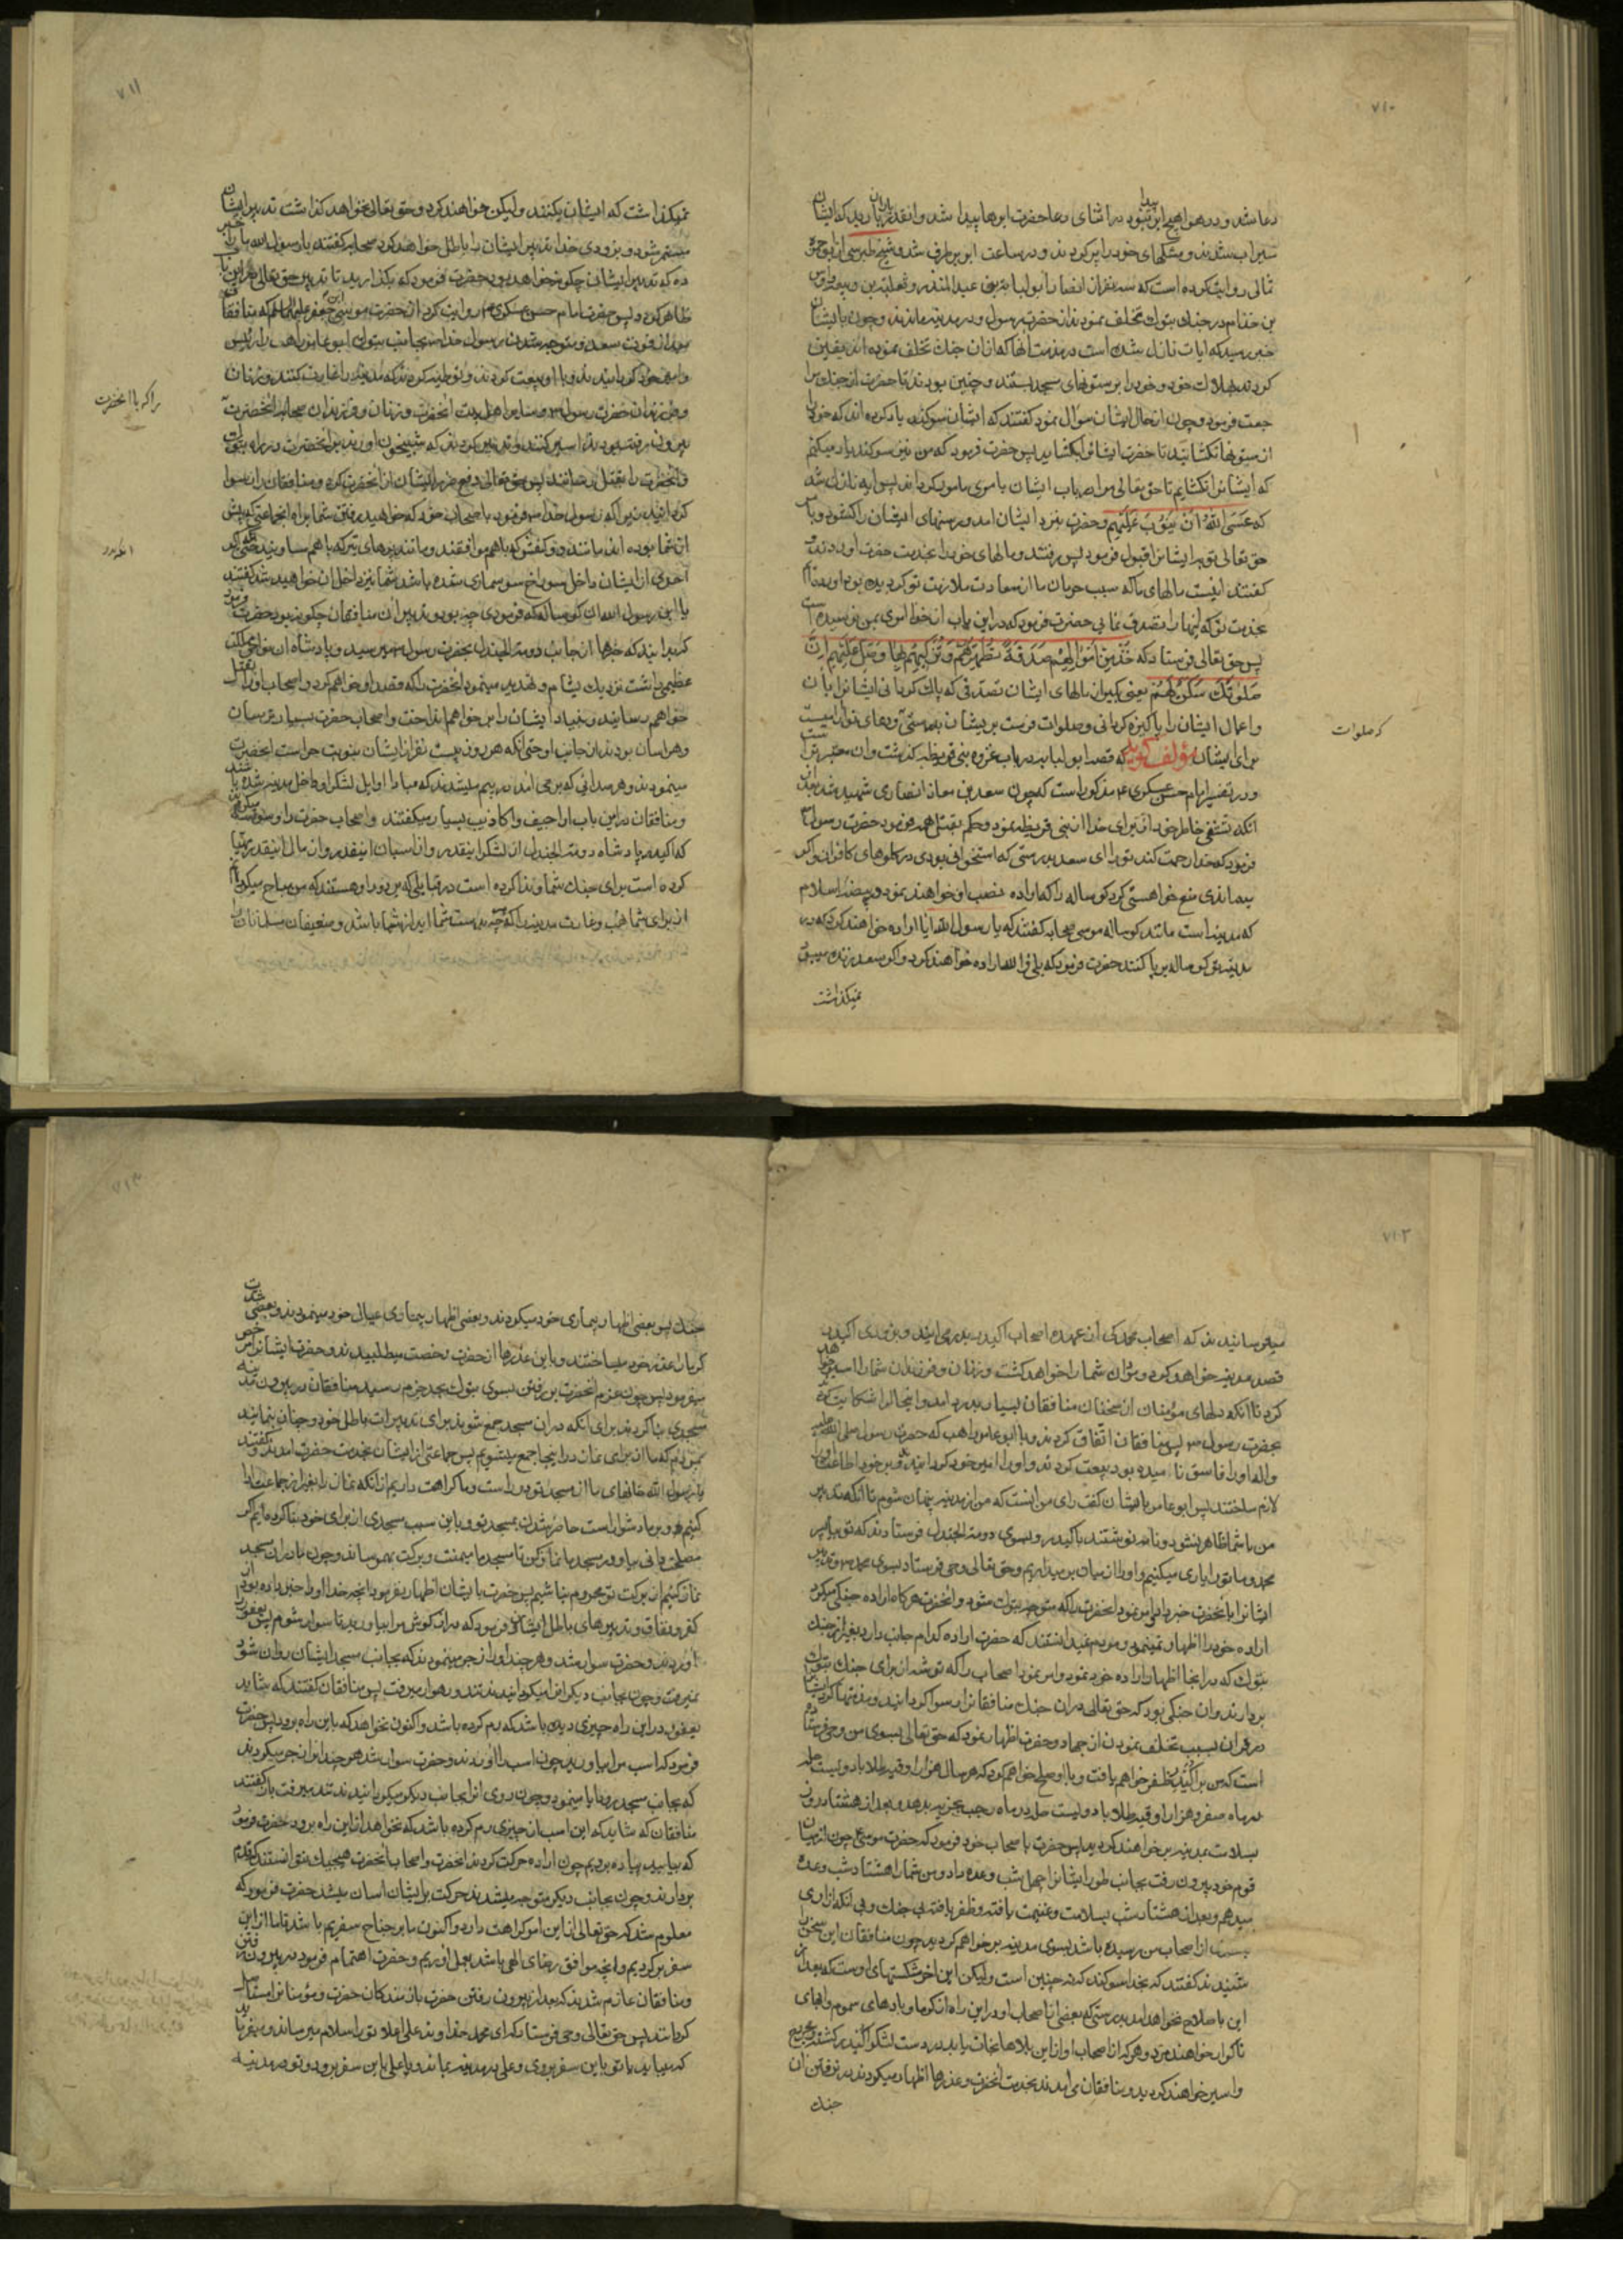 ۷۱۰
دعا شد و در هوا هیچ ابر نبود در اثنای دعا حضرت ابرها پیدا شد و انقدر باران بارید که ایشان
سیراب شدند و مشکهای خود را پر کردند و در ساعت ابر بر طرف شد و شیخ طبرسی از ابو حمزه
ثمالی روایت کرده است که سه نفر از انصار ابو لبابه بن عبد المنذر و ثعلبه بن ودیعه و اوس
بن حذام در جنك تبوك تخلف نمودند از حضرت رسول و در مدینه ماندند و چون بایشان
خبر رسید که ایات نازل شده است در مذمت انها که از ان جنك تخلف نموده اند یقین
کردند بهلاکت خود و خود را بر ستونهای مسجد بستند و چنین بودند تا حضرت از جنك مرا
جعت فرمود و چون از حال ایشان سؤال نمود کفتند که ایشان سوکند یاد کرده اند که خود را
از ستونها نکشایند تا حضرت ایشانرا بکشاید پس حضرت فرمود که من نیز سوکند یاد میکنم
که ایشانرا نکشایم تا حق تعالی مرا در باب ایشان بامری مامور کرداند پس این ایه نازل شد
که عَسَى اللهُ اَنْ یَتُوبَ عَلَیْهِم و حضرت بنزد ایشان امد و ریسمنهای ایشان را کشود و با
حق تعالی توبه ایشانرا قبول فرمود پس رفتند و مالهای خود را بخدمت حضرت اوردند و
کفتند اینست مالهای ما که سبب حرمان ما از سعادت ملازمت تو کردیده بود اورده ایم
بخدمت تو که اینها را تصدق نمائی حضرت فرمود که در این باب از خدا امری بمن نرسیده است
پس حق تعالی فرستاد که خُذْ مِنْ اَمْوالِهِمْ صَدَقَةً تُطَهِّرُهُمْ وَ تُزَکِّیهِمْ بِها وَ صَلِّ عَلَیْهِمْ اِنَّ
صَلوتَكَ سَکَنٌ لَهُمْ یعنی بکیر از مالهای ایشان تصدقی که پاك کردانی ایشانرا بان
و اعمال ایشان را پاکیزه کردانی و صلوات فرست بر ایشان بدرستی که صلوات و دعای تو ارامیست
برای ایشان مؤلف کوید که قصه ابو لبابه در باب غزوه بنی قریظه کذشت و ان معتبر تر است
و در تفسیر امام حسن عسکری ع مذکور است که چون سعد بن معاذ انصاری شهید شد بعد از
انکه تشفی خاطر خود از برای خدا از بنی قریظه نمود و حکم بقتل همه فرمود حضرت رسول
فرمود که خدا رحمت کند تو را ای سعد بدرستی که استخوانی بودی در کلوهای کافران و اکر
میماندی منع خواهستی کرد کوساله را که اراده نصب او خواهند نمود در بیضه اسلام
که مدینه است مانند کوساله موسی صحابه کفتند که یا رسول الله ایا اراده خواهند کرد که در
مدینه تو کوساله بر پا کنند حضرت فرمود که بلی والله اراده خواهند کرد و اکر سعد زنده میبود
نمیکذاشت
که صلوات
۷۱۱
نمیکذاشت که ایشان بکنند و لیکن خواهند کرد و حق تعالی نخواهد کذاشت تدبیر ایشان
مستمر شود و بزودی خدا تدبیر ایشان را باطل خواهد کرد صحابه کفتند یا رسول الله ما را خبر
ده که تدبیر ایشان چکونه خواهد بود حضرت فرمود که بکذارید تا تدبیر حق تعالی در این باب
ظاهر کردد پس حضرت امام حسن عسکری ع روایت کرد از حضرت موسی بن جعفر علیه السلام که منافقان
بعد از فوت سعد و متوجه شدن رسول خدا ص بجانب تبوك ابو عامر راهب را رئیس
و امیر خود کردانیدند و با او بیعت کردند و توطئه کردند که مدینه را غارت کنند و زنان
و فرزندان حضرت رسول ص و سایر اهل بیت انحضرت و زنان و فرزندان صحابه انحضرت
بیرون رفته بودند اسیر کنند و تدبیر کردند که شبیخون اورند بر انحضرت در راه تبوك
و انحضرت را بقتل رسانند پس حق تعالی دفع ضرر ایشان از انحضرت کرد و منافقان را رسوا
کردانید زیرا که رسول خدا ص فرمود با صحاب خود که خواهید رفت شما براه انجماعتی که پیش
از شما بوده اند مانند دو کفش که با هم موافقند و مانند پرهای تیر که با هم مساویند حتی انکه اکر
احدی از ایشان داخل سوراخ سوسماری شده باشد شما نیز داخل ان خواهید شد کفتند
یا ابن رسول الله ان کوساله که فرمودی چه بود و تدبیر ان منافقان چکونه بود حضرت فرمود
که بدانید که خبرها از جانب دومة الجندل بحضرت رسول ص میرسید و پادشاه ان نواحی ملك
عظیمی داشت نزدیك بشام و تهدید مینمود انحضرت را که قصد او خواهم کرد و اصحاب او را بقتل
خواهم رسانید و بنیاد ایشان را بر خواهم انداخت و اصحاب حضرت بسیار ترسان
و هراسان بودند از جانب او حتی انکه هر روز بیست نفر از ایشان بنوبت حراست انحضرت
مینمودند و هر صدائی که بر می امد در بیم میشدند که مبادا اوایل لشکر او داخل مدینه شده باشند
و منافقان در این باب اراجیف و اکاذیب بسیار میکفتند و اصحاب حضرت را وسوسه میکردند
که اکیدر پادشاه دومة الجندل از لشکر اینقدر و از اسبان اینقدر و از مال اینقدر مهیا
کرده است برای جنك شما و ندا کرده است در قبایلی که بر دور او هستند که من مباح میکردانم
از برای شما نهب و غارت مدینه را
را که با انحضرت
اکیدر
۷۱۲
میترسانیدند که اصحاب محمد کی از عهده اصحاب اکیدر بدر می ایند و بزودی اکیدر
قصد مدینه خواهد کرد و مردان شما را خواهد کشت و زنان و فرزندان شما را اسیر خواهد
کرد تا انکه دلهای مؤمنان از سخنان منافقان بسیار بدرد امد و انحال را شکایت کردند
بحضرت رسول ص پس منافقان اتفاق کردند و با ابو عامر راهب که حضرت رسول صلی الله علیه
و اله او را فاسق نامیده بود بیعت کردند و او را امیر خود کردانیدند و بر خود اطاعت او را
لازم ساختند پس ابو عامر بایشان کفت رای من اینست که من از مدینه پنهان شوم تا انکه تدبیر
من با شما ظاهر نشود و نامه نوشتند باکیدر و بسوی دومة الجندل فرستادند که تو بیا بر سر
محمد و ما تو را یاری میکنیم و او را از میان بر میداریم و حق تعالی وحی فرستاد بسوی محمد ص و تدبیر
ایشانرا بانحضرت خبر داد و امر نمود انحضرت را که متوجه تبوك شود و انحضرت هرکاه اراده جنکی میکرد
اراده خود را اظهار نمینمود و مردم نمیدانستند که حضرت اراده کدام جانب دارد بغیر از جنك
تبوك که در انجا اظهار اراده خود نمود و امر نمود اصحاب را که توشه از برای جنك تبوك
بردارند و ان جنکی بود که حق تعالی در ان جنك منافقانرا رسوا کردانید و مذمتها کرد ایشانرا
در قران بسبب تخلف نمودن از جهاد و حضرت اظهار نمود که حق تعالی بسوی من وحی فرستاده
است که من بر اکیدر ظفر خواهم یافت و با او صلح خواهم کرد که هر سال هزار اوقیه طلا با دویست حله
در ماه صفر و هزار اوقیه طلا با دویست حله در ماه رجب بجزیه بدهد و بعد از هشتاد روز
بسلامت بمدینه بر خواهند کردید پس حضرت باصحاب خود فرمود که حضرت موسی ع چون از میان
قوم خود بیرون رفت بجانب طور ایشانرا چهل شب وعده داد و من شما را هشتاد شب وعده
میدهم و بعد از هشتاد شب بسلامت و غنیمت یافته و ظفر یافته بی جنك و بی انکه ازاری
باحدی از اصحاب من رسیده باشد بسوی مدینه بر خواهم کردید چون منافقان این سخن را
شنیدند کفتند که بخدا سوکند که نه چنین است و لیکن این اخر شکستهای اوست که بعد از
این باصلاح نخواهد امد بدرستی که بعضی از اصحاب او در این راه از کرما و بادهای سموم و ابهای
ناکوار خواهند مرد و هر که از اصحاب او از این بلاها نجات یابد بدست لشکر اکیدر کشته و مجروح
و اسیر خواهند کردید و منافقان می امدند بخدمت انحضرت و عذرها اظهار میکردند در نرفتن ان
جنك
۷۱۳
جنك پس بعضی اظهار بیماری خود میکردند و بعضی اظهار بیماری عیال خود مینمودند و بعضی شدت
کرما را عذر خود میساختند و باین عذرها از حضرت رخصت میطلبیدند و حضرت ایشانرا مرخص
میفرمود پس چون عزم انحضرت بر رفتن بسوی تبوك بحد جزم رسید منافقان در بیرون مدینه
مسجدی بنا کردند برای انکه در ان مسجد جمع شوند برای تدبیرات باطل خود و چنان بنمایند
بمردم که ما از برای نماز در اینجا جمع میشویم پس جماعتی از ایشان بخدمت حضرت امدند و کفتند
یا رسول الله خانهای ما از مسجد تو دور است و ما کراهت داریم از انکه نماز را بغیر از جماعت ادا
کنیم و بر ما دشوار است حاضر شدن بمسجد تو و باین سبب مسجدی از برای خود بنا کرده ایم اکر
مصلحت دانی بیا و در مسجد ما نماز کن تا مسجد ما میمنت و برکت بهم رساند و چون ما در ان مسجد
نماز کنیم از برکت تو محروم نباشیم پس حضرت بایشان اظهار نفرمود انچه خدا او را خبر داده بود از
کفر و نفاق و تدبیرهای باطل ایشان و فرمود که دراز کوش مرا بیاورید تا سوار شوم پس یعفور را
اوردند و حضرت سوار شد و هر چند او را زجر مینمودند که بجانب مسجد ایشان روان شود
نمیرفت و چون بجانب دیکر انرا میکردانیدند تند و رهوار میرفت پس منافقان کفتند که شاید
یعفور در این راه چیزی دیده باشد که رم کرده باشد و اکنون نخواهد که باین راه برود پس حضرت
فرمود که اسب مرا بیاورید چون اسب را اوردند و حضرت سوار شد هر چند انرا زجر میکردند
که بجانب مسجد برود ابا مینمود و چون روی انرا بجانب دیکر میکردانیدند تند میرفت باز کفتند
منافقان که شاید که این اسب از چیزی رم کرده باشد که نخواهد از این راه برود حضرت فرمود
که بیایید پیاده برویم چون اراده حرکت کردند انحضرت و اصحاب انحضرت هیچیك نتوانستند که قدم
بردارند و چون بجانب دیکر متوجه میشدند حرکت بر ایشان اسان میشد حضرت فرمود که
معلوم شد که حق تعالی از این امر کراهت دارد و اکنون ما بر جناح سفریم باشد تا ما از این
سفر بر کردیم و انچه موافق رضای الهی باشد بعمل اوریم و حضرت اهتمام فرمود در بیرون رفتن
و منافقان عازم شدند که بعد از بیرون رفتن حضرت باز مندکان حضرت و مؤمنانرا مستاصل
کردانند پس حق تعالی وحی فرستاد که ای محمد خداوند علی اعلا تو را سلام میرساند و میفرماید
که میباید یا تو باین سفر بروی و علی در مدینه بماند و یا علی باین سفر برود و تو در مدینه